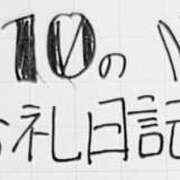 10の
礼日記